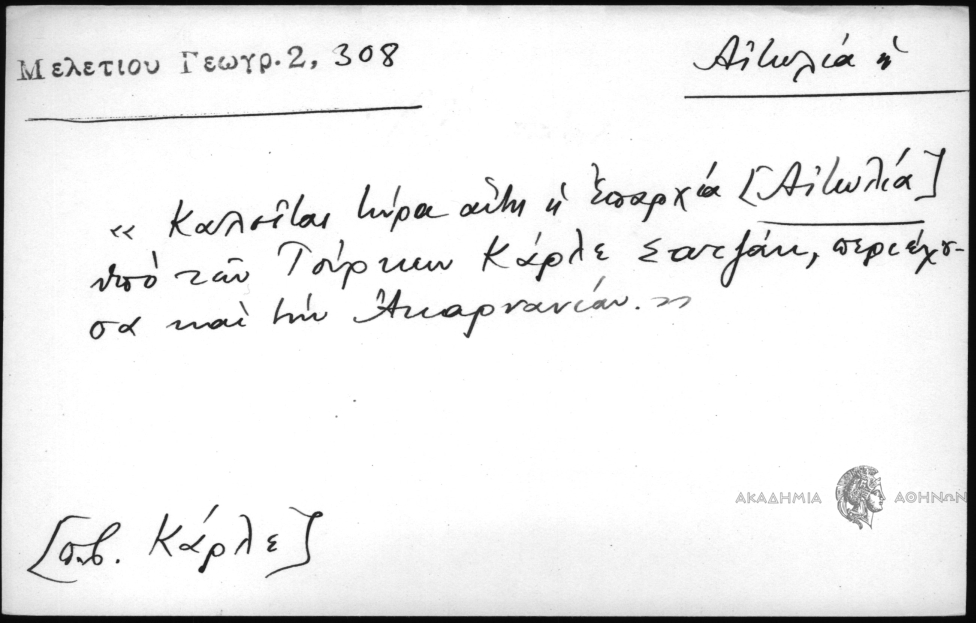 Μελετίου Γεωγρ. 2, 308
Αἰτωλία ἡ
« Καλεῖται τώρα αὕτη ἡ Ἐπαρχία [Αἰτωλία]
ὑπὸ τῶν Τούρκων Κάρλε Σατζάκ, περιέχου-
σα καὶ τὴν Ἀκαρνανίαν. »
ΑΚΑΔΗΜΙΑ ΑΘΗΝΩΝ
[πβ. Κάρλε]